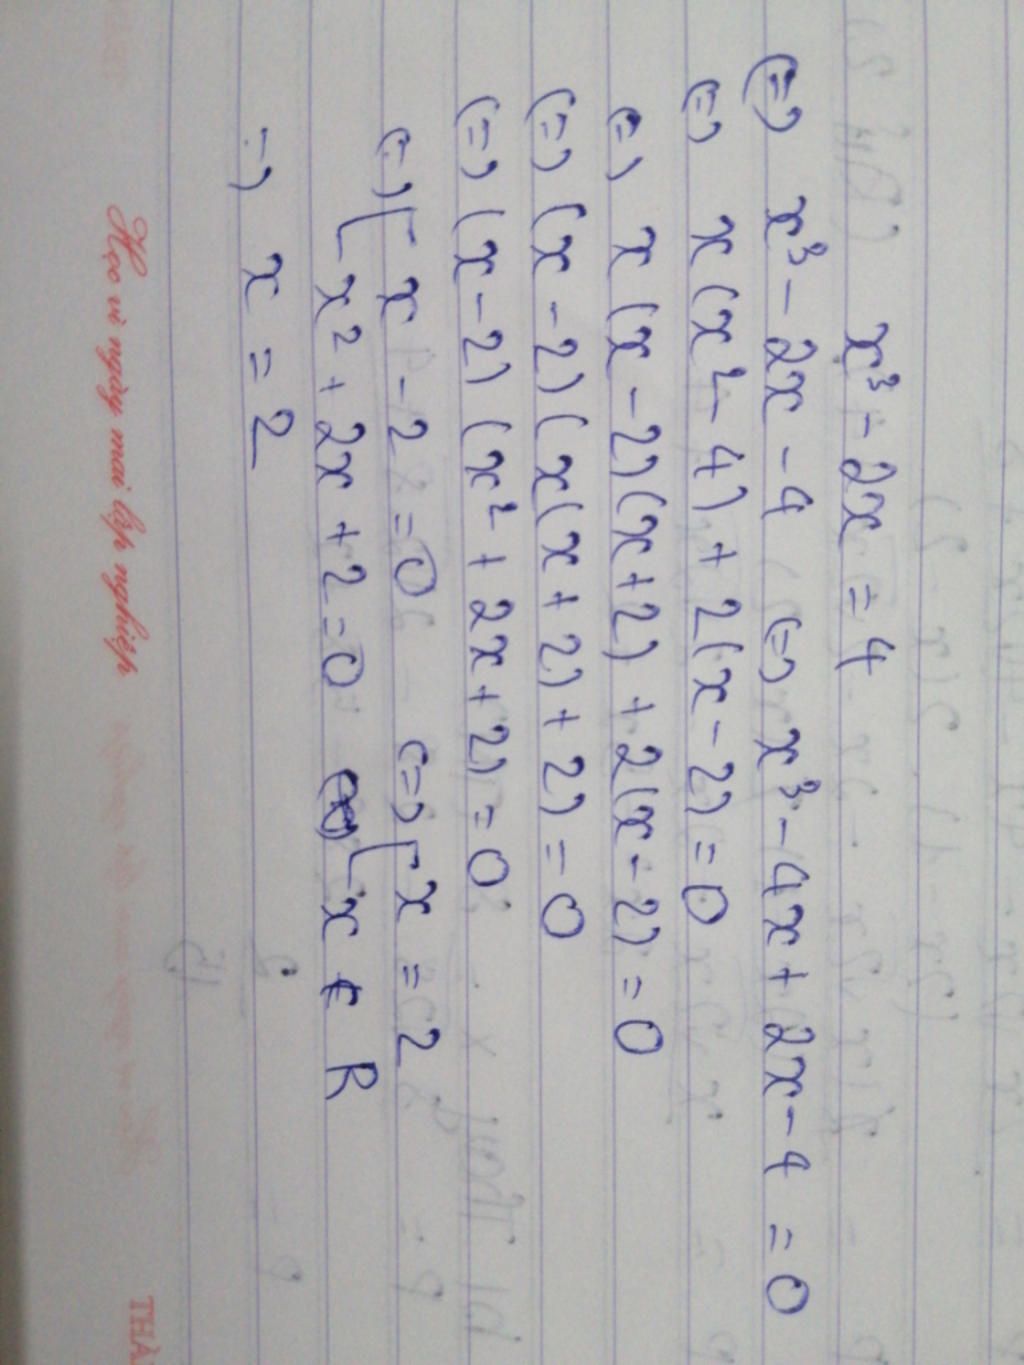 x³ - 2x = 4
(=) x³ - 2x - 4 (=) x³ - 4x + 2x - 4 = 0
(=) x(x² - 4) + 2(x - 2) = 0
(=) x(x - 2)(x + 2) + 2(x - 2) = 0
(=) (x - 2)(x(x + 2) + 2) = 0
(=) (x - 2)(x² + 2x + 2) = 0
(=) [ x - 2 = 0 (=) [ x = 2
[ x² + 2x + 2 = 0 [ x ∈ R
=) x = 2
Học vì ngày mai lập nghiệp
THÀ